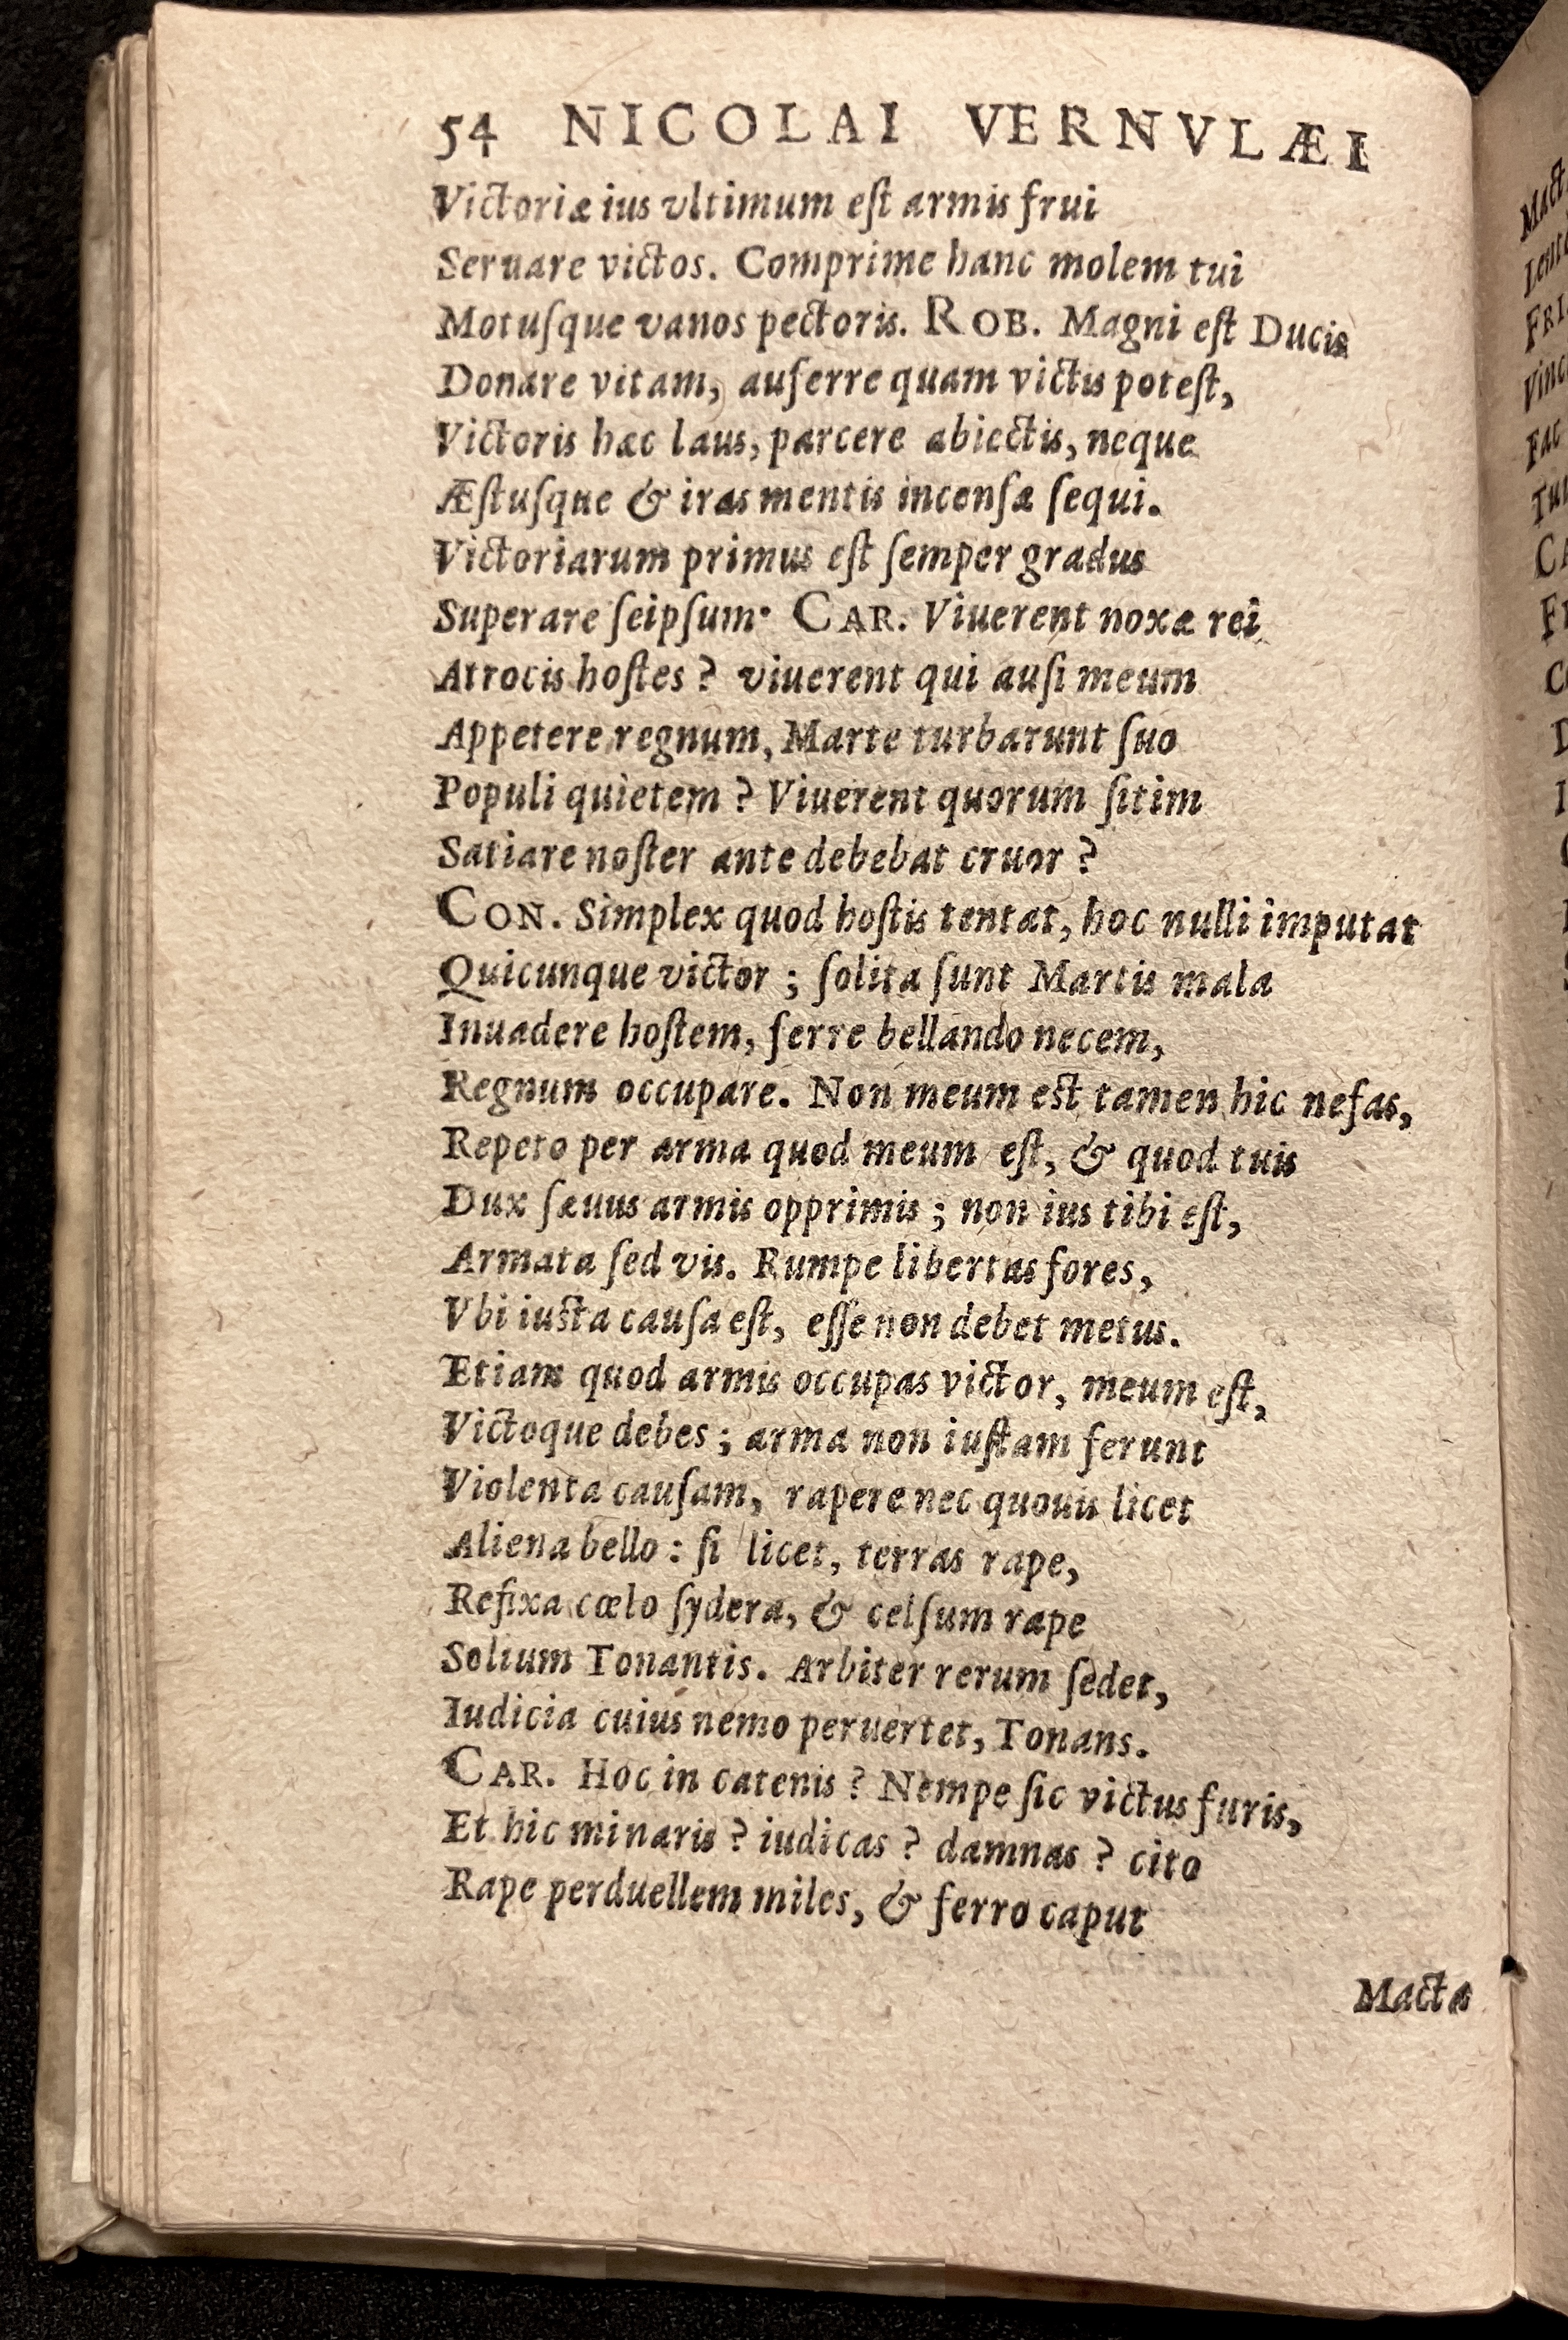 54 NICOLAI VERNVLÆI
Victoriæ ius vltimum eſt armis frui
Seruare victos. Comprime hanc molem tui
Motuſque vanos pectoris. ROB. Magni eſt Ducis
Donare vitam, auferre quam victis poteſt,
Victoris hæc laus, parcere abiectis, neque
Æſtuſque & iras mentis incenſæ ſequi.
Victoriarum primus eſt ſemper gradus
Superare ſeipſum. CAR. Viuerent noxæ rei
Atrocis hoſtes ? viuerent qui auſi meum
Appetere regnum, Marte turbarunt ſuo
Populi quietem ? Viuerent quorum ſitim
Satiare noſter ante debebat cruor ?
CON. Simplex quod hoſtis tentat, hoc nulli imputat
Quicunque victor ; ſolita ſunt Martis mala
Inuadere hoſtem, ferre bellando necem,
Regnum occupare. Non meum est tamen hic nefas,
Repeto per arma quod meum eſt, & quod tuis
Dux ſæuus armis opprimis ; non ius tibi eſt,
Armata ſed vis. Rumpe libertas fores,
Vbi iusta cauſa eſt, eſſe non debet metus.
Etiam quod armis occupas victor, meum eſt,
Victoque debes ; arma non iuſtam ferunt
Violenta cauſam, rapere nec quouis licet
Aliena bello : ſi licet, terras rape,
Refixa cœlo ſydera, & celſum rape
Solium Tonantis. Arbiter rerum ſedet,
Iudicia cuius nemo peruertet, Tonans.
CAR. Hoc in catenis ? Nempe ſic victus furis,
Et hic minaris ? iudicas ? damnas ? cito
Rape perduellem miles, & ferro caput
Macta